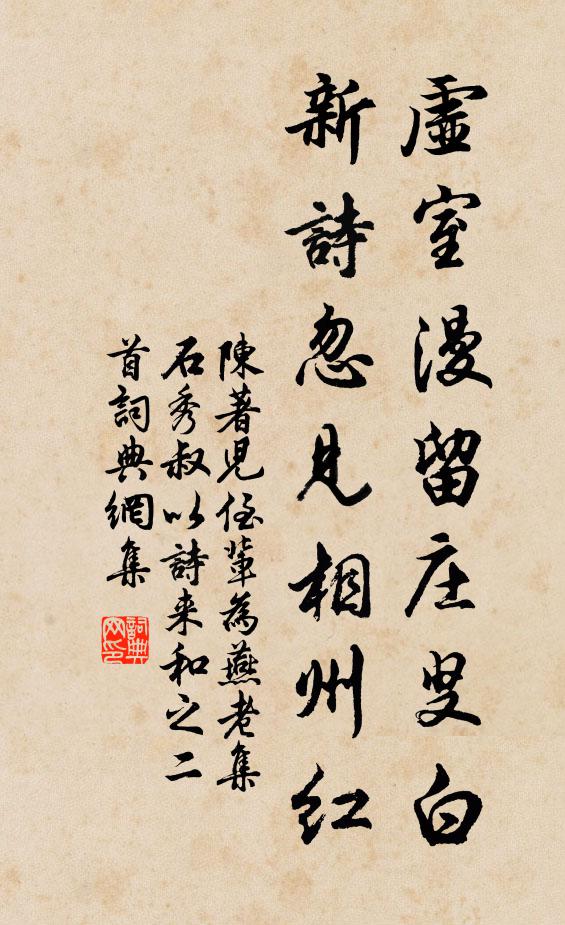 虛室漫留庄叟白
新詩忽見相州紅
陳著児侄輩為燕老集
石秀叔以詩来和之二
首詞典網集
詞典
网印